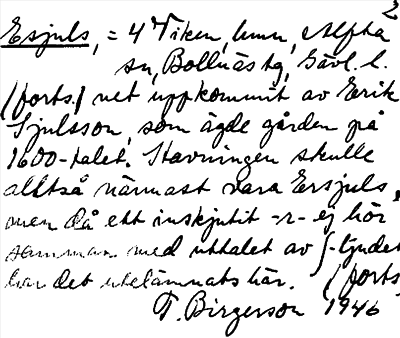 2
Esjuls, = 4 Viken, hmn, Alfta
sn, Bollnäs tg, Gävl. l.
(forts.) net uppkommit av Erik
Sjulsson, som ägde gården på
1600-talet. Stavningen skulle
alltså närmast vara Ersjuls,
men då ett inskjutit -r- ej hör
samman med uttalet av ʃ-ljudet
har det utelämnats här. (forts
T. Birgerson 1946